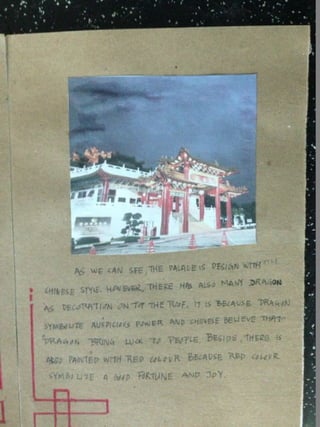 AS WE CAN SEE, THE PALACE IS DESIGN WITH
CHINESE STYLE. HOWEVER, THERE HAS ALSO MANY DRAGON
AS DECORATION ON TOP THE ROOF. IT IS BECAUSE DRAGON
SYMBOLIZE AUSPICIOUS POWER AND CHINESE BELIEVE THAT
DRAGON BRING LUCK TO PEOPLE. BESIDE, THERE IS
ALSO PAINTED WITH RED COLOUR BECAUSE RED COLOUR
SYMBOLIZE A GOOD FORTUNE AND JOY.